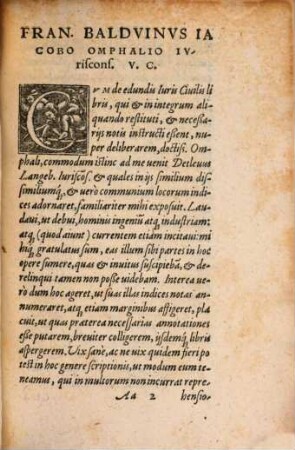 FRAN. BALDVINVS IA
COBO OMPHALIO IV-
riscons. V. C.
CVM de edundis Iuris Ciuilis li
bris, qui & in integrum ali-
quando restituti, & necessa-
rijs notis instructi essent, nu-
per deliberarem, doctiss. Om-
phali, commodum istinc ad me venit Detleuus
Langeb. Iuriscōs. & quales in ijs similium dis-
similiumq́, & verò communium locorum indi-
ces adornaret, familiariter mihi exposuit. Lau-
daui, ut debui, hominis ingeniū atq́ industriam:
atq́ (quod aiunt) currentem etiam incitaui: mi
hiq́ gratulatus sum, eas illum sibi partes in hoc
opere sumere, quas & inuitus suscipiebā, & de-
relinqui tamen non posse videbam. Interea ve-
rò dum hoc ageret, ut suas illas indices notas an-
numeraret, atq́ etiam marginibus affigeret, pla
cuit, ut quas præterea necessarias annotationes
esse putarem, breuiter colligerem, ijsdemq́ libris
aspergerem. Vix sanè, ac ne vix quidem fieri po
test in hoc genere scriptionis, ut modum eum te-
neamus, qui in multorum non incurrat repre
Aa 2 hensio-